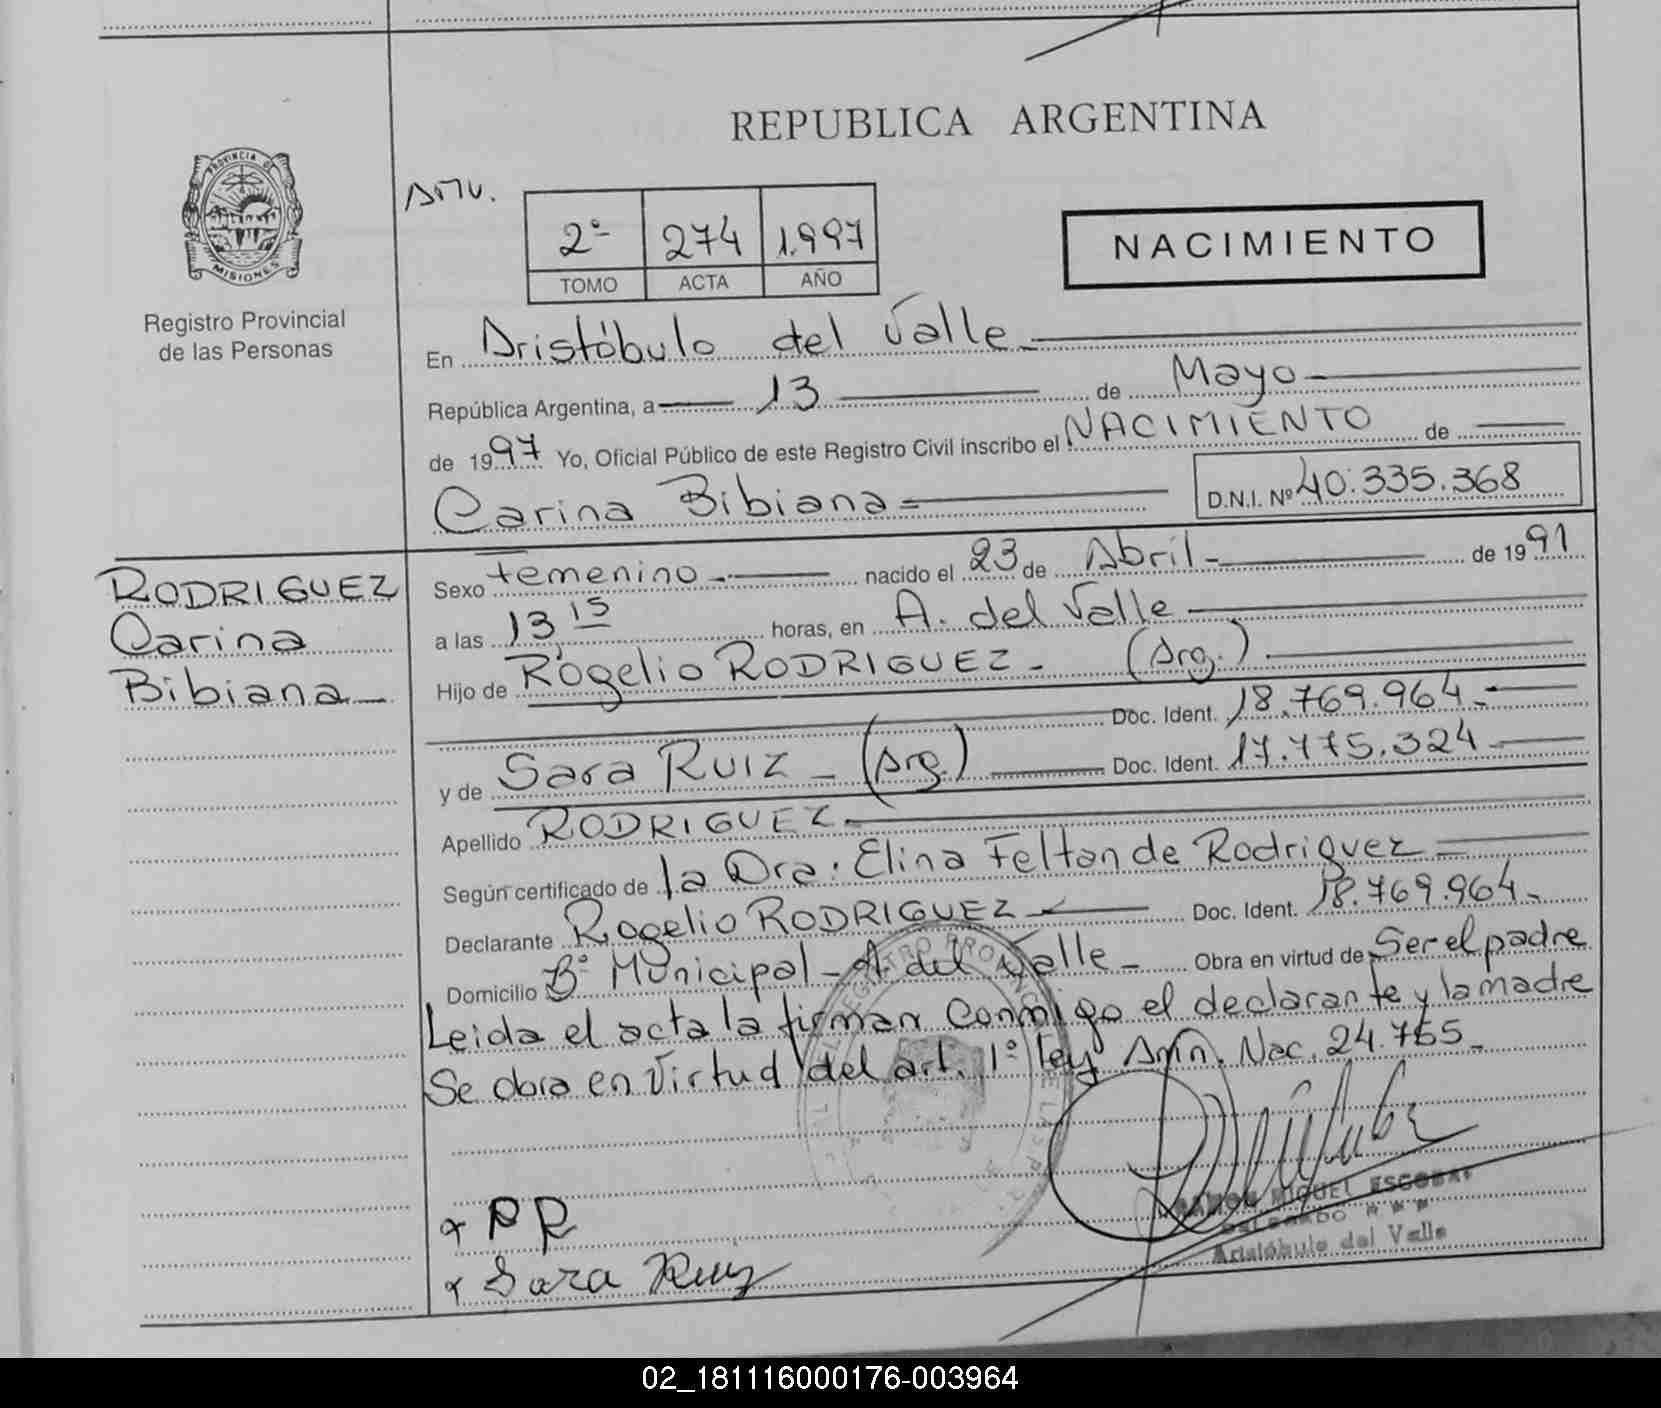 REPUBLICA ARGENTINA
PROVINCIA DE
MISIONES
Registro Provincial
de las Personas
2º 274 1.997
TOMO ACTA AÑO
NACIMIENTO
En Aristóbulo del Valle
República Argentina, a 13 de Mayo
de 1997 Yo, Oficial Público de este Registro Civil inscribo el NACIMIENTO de
Carina Bibiana D.N.I. Nº 40.335.368
RODRIGUEZ
Carina
Bibiana
Sexo Femenino nacido el 23 de Abril de 1991
a las 13 15 horas, en A. del Valle
Hijo de Rogelio RODRIGUEZ - (Arg.)
Doc. Ident. 18.769.964
y de Sara RUIZ - (Arg.) Doc. Ident. 17.775.324
Apellido RODRIGUEZ
Según certificado de la Dra. Elina Feltan de Rodriguez
Declarante Rogelio RODRIGUEZ Doc. Ident. 18.769.964
Domicilio Bº Municipal - A. del Valle - Obra en virtud de Ser el padre
Leida el acta la firman conmigo el declarante y la madre
Se obra en virtud del art. 1º Ley Amn. Nac. 24.755
RR
Sara Ruiz
RAMON MIGUEL ESCOBAR
DELEGADO
Aristóbulo del Valle
02_181116000176-003964